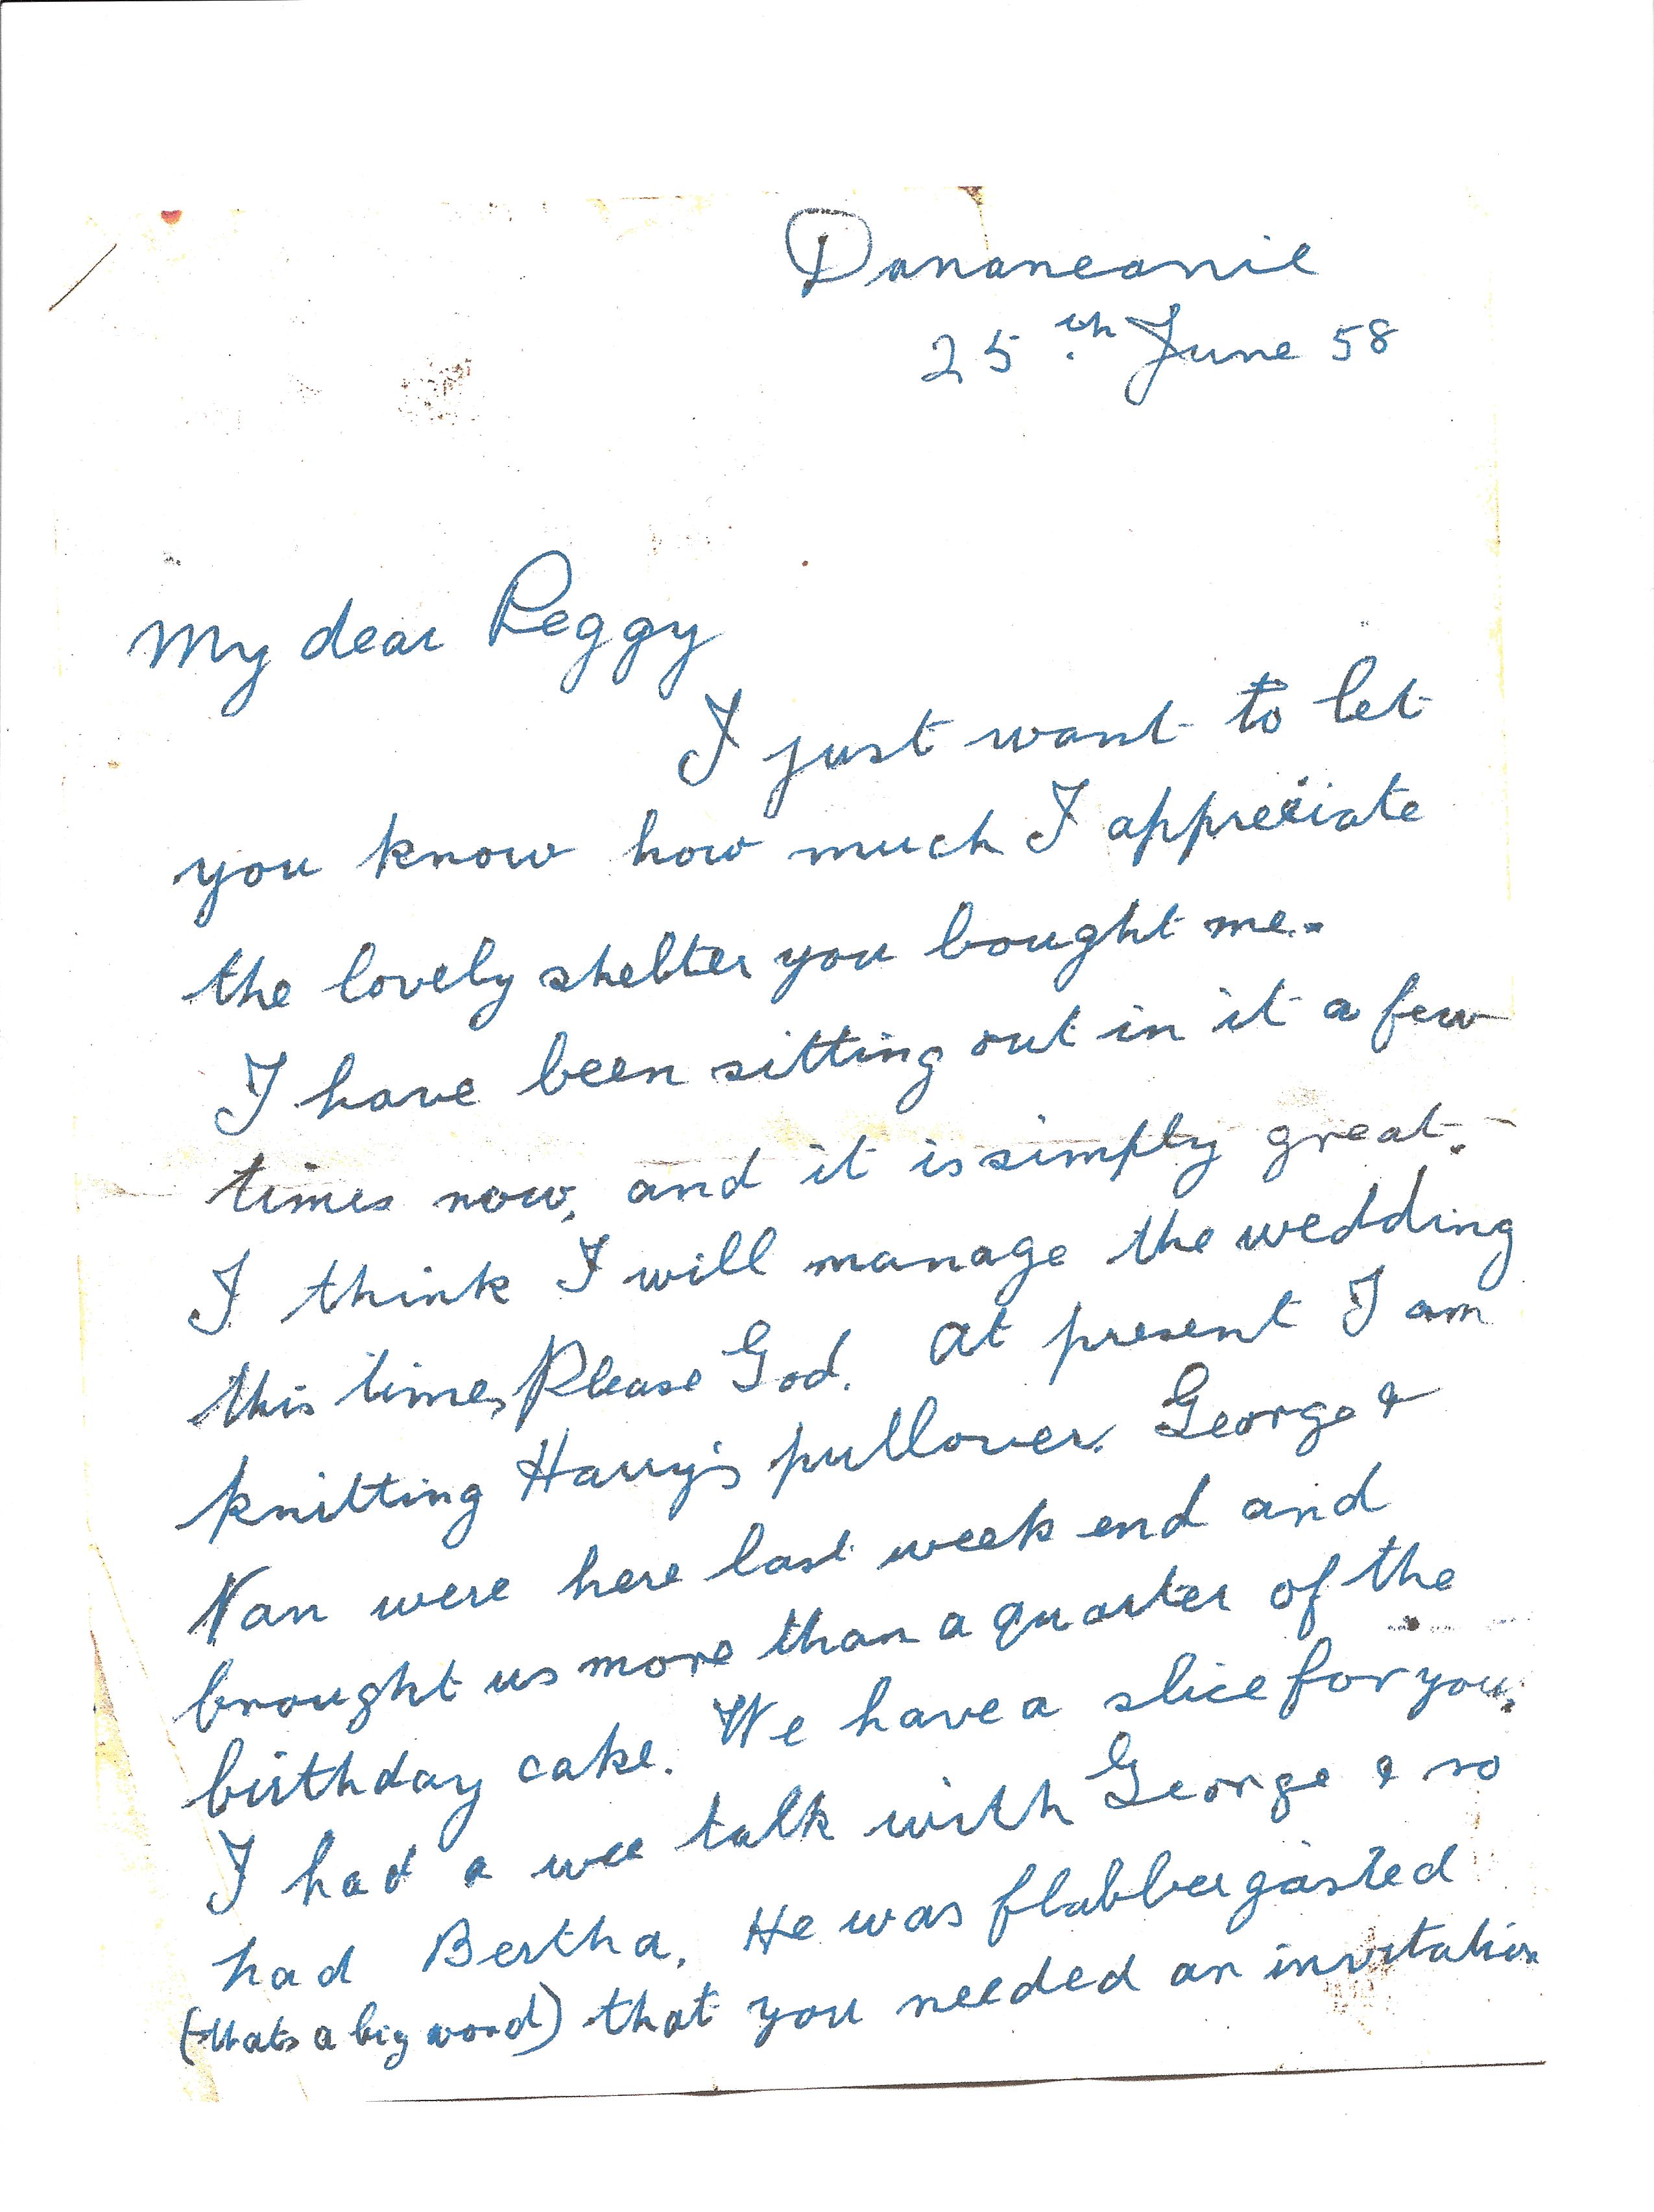 Dananeanie
25th June 58
My dear Peggy
I just want to let
you know how much I appreciate
the lovely shelter you bought me.
I have been sitting out in it a few
times now, and it is simply great.
I think I will manage the wedding
this time, Please God. At present I am
knitting Harry's pullover. George &
Nan were here last week end and
brought us more than a quarter of the
birthday cake. We have a slice for you.
I had a wee talk with George & so
had Bertha. He was flabbergasted
(thats a big word) that you needed an invitation